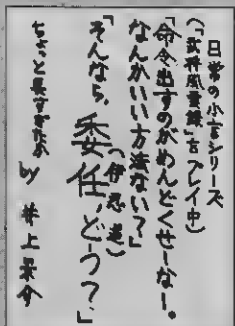 日常の小言シリーズ
(「武将風雲録」をプレイ中)
「命令出すのがめんどくせーなー。
なんかいい方法ない？」
「そんなら、委任、どーう？」
(伊忍道)
ちょっと長すぎたか
by 井上